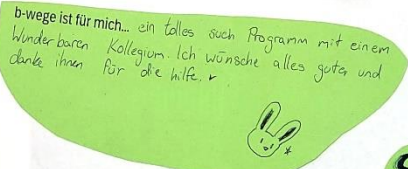 b-wege ist für mich... ein tolles such Programm mit einem
Wunderbaren Kollegium. Ich wünsche alles gutes und
danke ihnen für die hilfe.